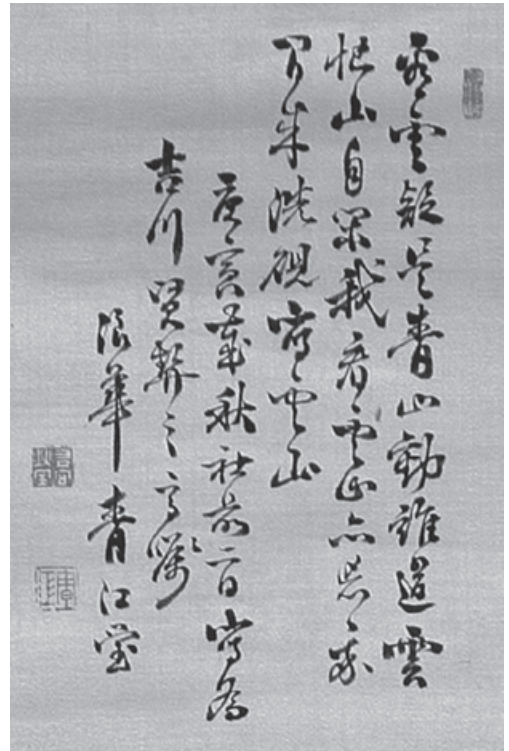 看雲疑是青山動誰道雲
忙山自閑我看雲山亦忘我
閒來洗硯寫雲山
庚寅歲秋社前二日寫為
吉川賢契之高囑
浪華青江瑩